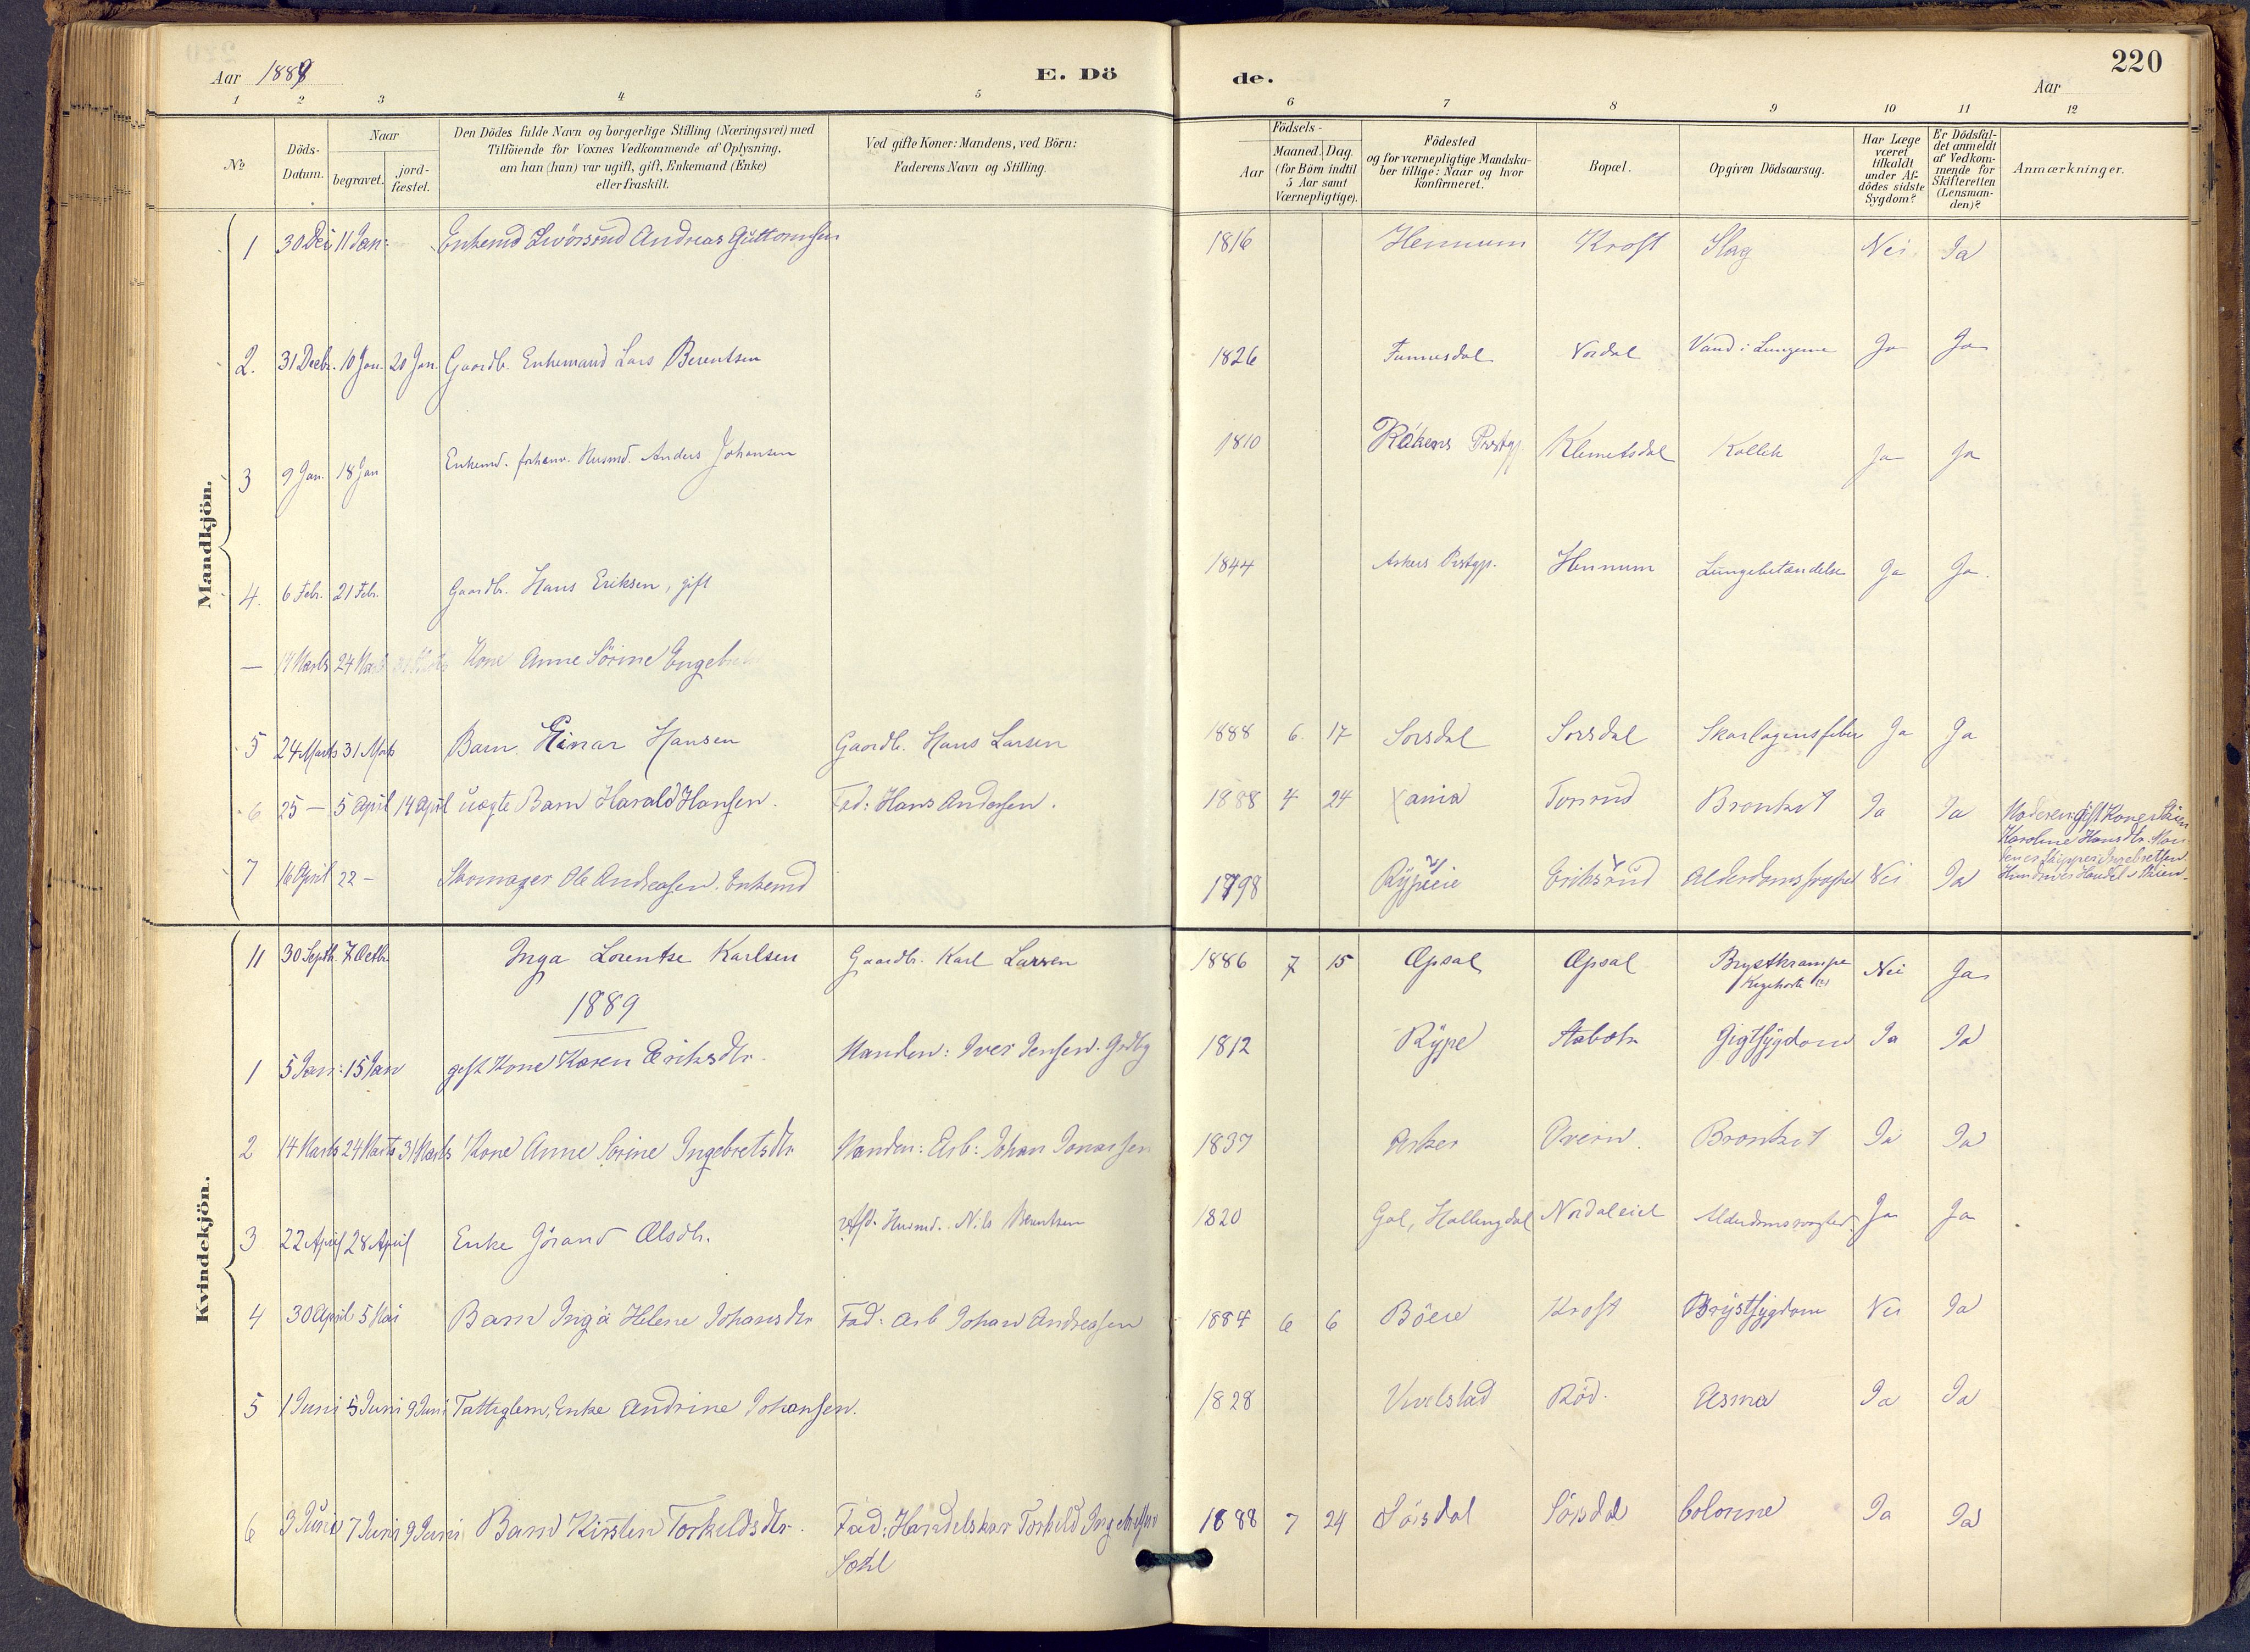 Aar 1889 E. Dö de. Aar 220
1 2 3 4 5 6 7 8 9 10 11 12
No
Döds-Datum.
Naar
begravet.
jord-fæstet.
Den Dödes fulde Navn og borgerlige Stilling (Næringsvei) med
Tilföiende for Voxnes Vedkommende af Oplysning,
om han (hun) var ugift, gift, Enkemand (Enke)
eller fraskilt.
Ved gifte Koner: Mandens, ved Börn:
Faderens Navn og Stilling.
Födsels-
Aar
Maaned. Dag.
(for Börn indtil
5 Aar samt
Værnepligtige).
Födested
og for værnepligtige Mandska-
ber tillige: Naar og hvor
konfirmeret.
Bopæl.
Opgiven Dödsaarsag.
Har Læge
været
tilkaldt
under Af-
dödes sidste
Sygdom?
Er Dödsfal-
det anmeldt
af Vedkom-
mende for
Skifteretten
(Lensman-
den)?
Anmærkninger.
Mandkjön.
1 30 Dec 11 Jan: Enkemd Andreas Guttormsen 1816 Hennum Kroft Slag Nei Ja
2. 31 Decbr. 10 Jan. 20 Jan. Gaardb. Enkemand Lars Berentsen 1826 Nordal Vand i Lungerne Ja Ja
3 9 Jan. 18 Jan Enkemd. Husmd. Anders Johansen 1810 Røkens Prstgj. Klemetsdal Ja Ja
4. 6 Febr. 21 Febr. Gaardbr. Hans Eriksen, gift 1844 Askers Prstgj. Hennum Lungebetændelse Ja Ja.
— 14 Marts 24 Marts Kone Anne Sörine Engebret
5 24 Marts 31 Marts Barn Einar Hansen Gaardb. Hans Larsen 1888 6. 17 Sørsdal Sørsdal Skarlagensfeber Ja Ja
6 25 — 5 April 14 April uægte Barn Harald Hansen. Fad: Hans Andersen. 1888 4 24 Xania Tonrud Bronkit Ja Ja Moderen: gift Kone
Karoline Hansdtr. Man
den er Skipper Ingebretsen
7 16 April 22 — Skomager Ole Andreasen. Enkemd 1798 Rypeeie Eriksrud Alderdomssvaghed Nei Ja
Kvindekjön.
11 30 Septb. 7 Octb. Inga Lorentse Karlsen Gaardb. Karl Larsen 1886 7 15 Æpsal Æpsal Brystkrampe
Kighoste (?) Nei Ja
1889
1 5 Jan: 15 Jan gift Kone Karen Eriksdtr. Manden: Iver Jensen. Grdbg 1812 Rype Gigtsygdom Ja Ja
2 14 Marts 24 Marts 31 Marts Kone Anne Sorine Ingebretsdtr Manden: Arb: Johan Jonassen 1837 Asker Overn. Bronkit Ja Ja
3 22 April 28 April Enke Görand Olsdtr. Husmd. Nils Berentsen 1820 Gol, Hallingdal Nordaleiet Alderdomssvaghed. Ja Ja
4 30 April 5 Mai Barn Inga Helene Johansdtr Fad: Arb Johan Andreasen 1884 6 6 Böeie Kroft Brystsygdom Nei Ja
5 1 Juni 5 Juni 9 Juni Fattiglem, Enke Andrine Johansen. 1828 Röd. Asma Ja Ja
6 3 Juni 7 Juni 9 Juni Barn Kirsten Torkeldsdtr. Fad: Handelskar Torkeld Ingebretsen
1888 7 24 Sörsdal Sörsdal Colorine Ja Ja